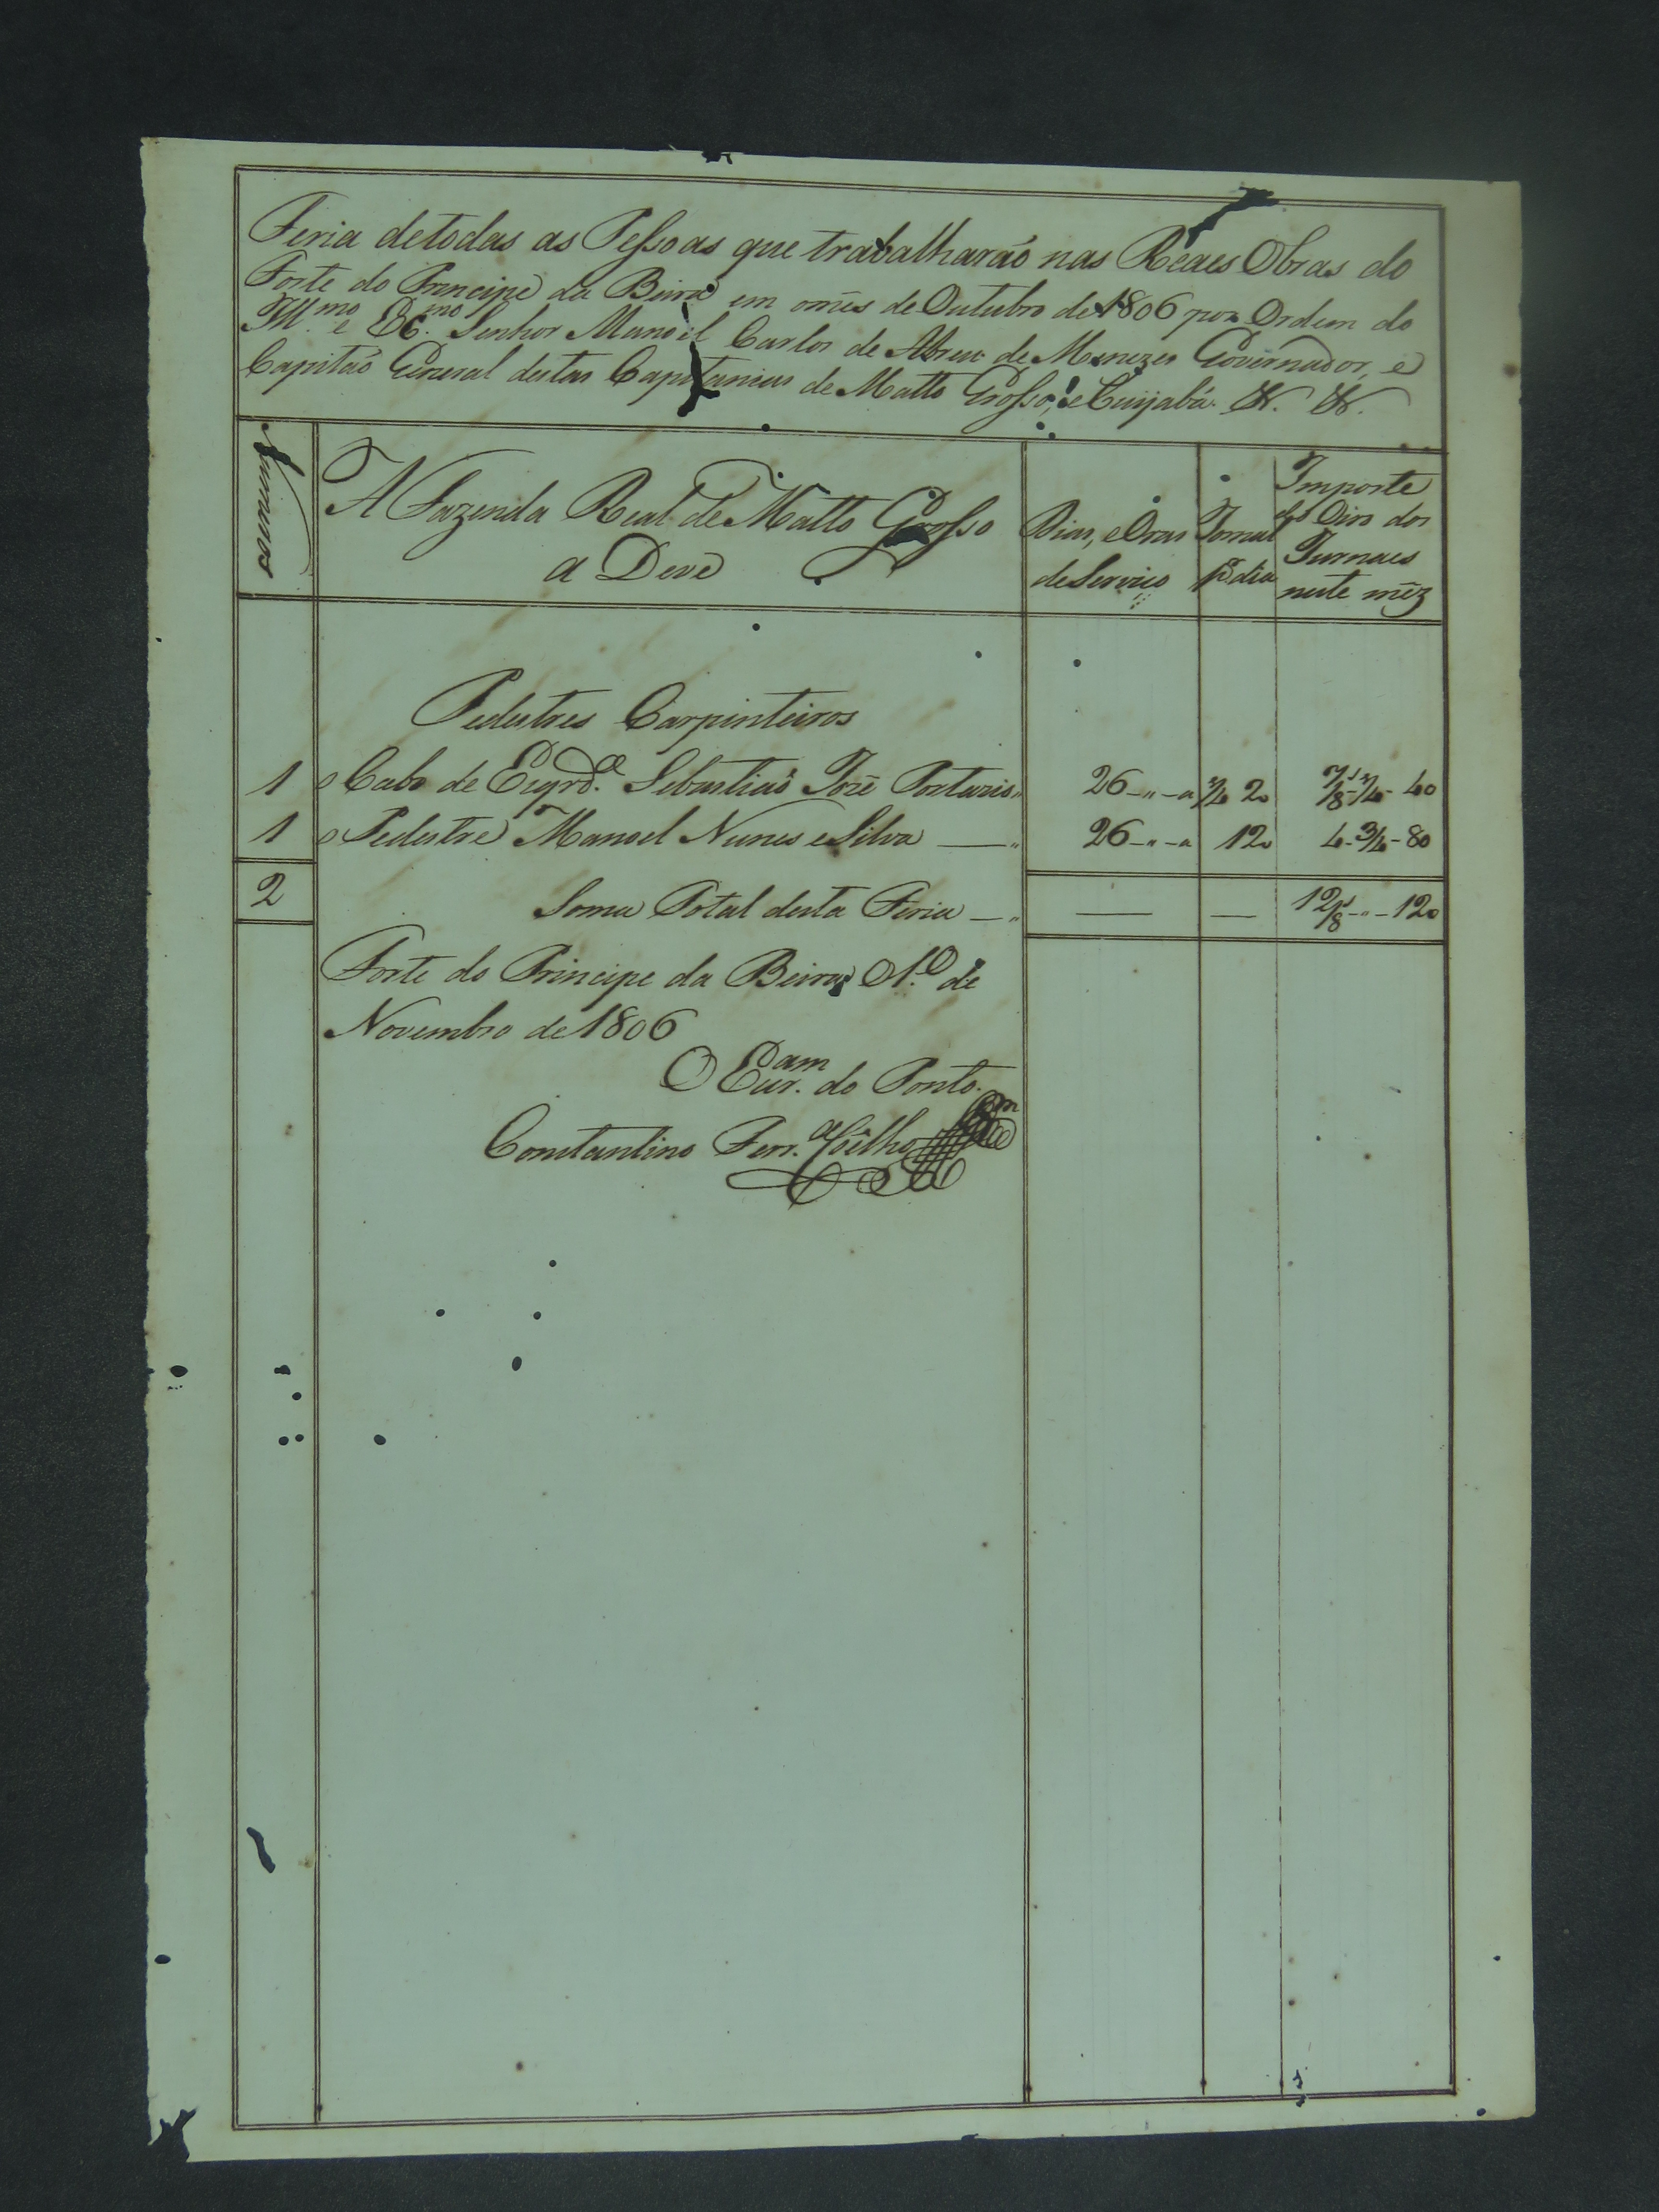 Feria detodas as Pessoas que trabalharaõ nas Reaes Obras do
Forte do Principe da Beira em omês de Outubro de 1806 por Ordem do
Ill.mo e Ex.mo Senhor Manoel Carlos de Abreu de Menezes Governador, e
Capitaõ General destas Capitanias de Matto Grosso, e Cuyabá. &. &.
Numeros
A Fazenda Real de Matto Grosso
a Deve
Dias, e Oras
de Serviço
Jornal
p.r dia
Importe
dos
Jurnaes
neste mêz
Pedestres Carpinteiros
1 o Cabo de Esqrd.a Sebastiaõ José 26 20 7/8 40
1 o Pedestre Manoel Nunes e Silva 26 120 4-3/4-80
2 Soma Total desta Feria 12/8 - 120
Forte do Principe da Beira o 1.o de
Novembro de 1806
O do Ponto
Constantino Ferr.a Coêlho